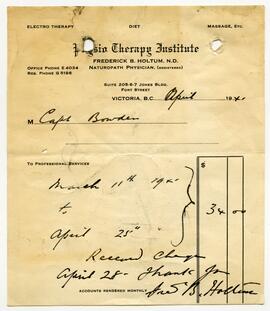 ELECTRO THERAPY DIET MASSAGE, ETC.
Physio Therapy Institute
FREDERICK B. HOLTUM, N.D.
OFFICE PHONE E 4034 NATUROPATH PHYSICIAN, (REGISTERED)
RES. PHONE G 5166
SUITE 205-6-7 JONES BLDG.
FORT STREET
VICTORIA, B.C. April 1941
M Capt Bowden
TO PROFESSIONAL SERVICES $
March 11th 1941
to 34 00
April 25th
Received Cheque
April 28 - Thank You
ACCOUNTS RENDERED MONTHLY Fred B. Holtum